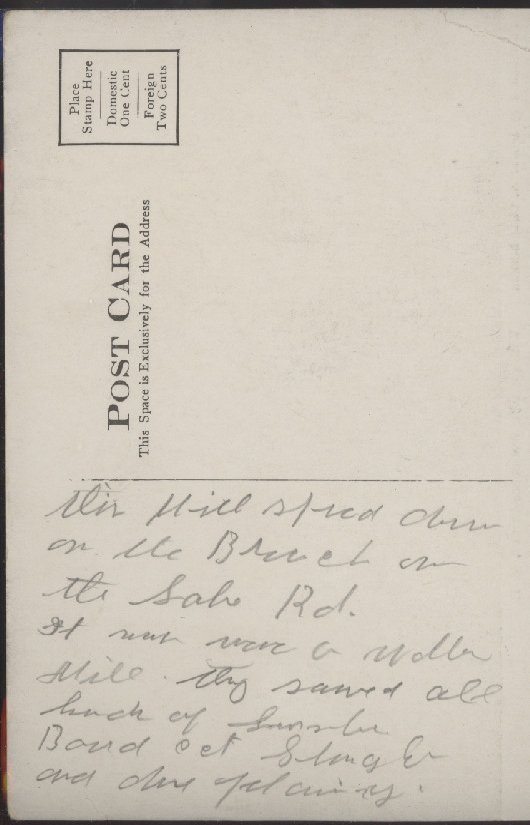 Place
Stamp Here
Domestic
One Cent
Foreign
Two Cents
POST CARD
This Space is Exclusively for the Address
this Mill stood down
on the Branch on
the Rd.
It was a
Mill. they sawed all
of
Board
and planing.